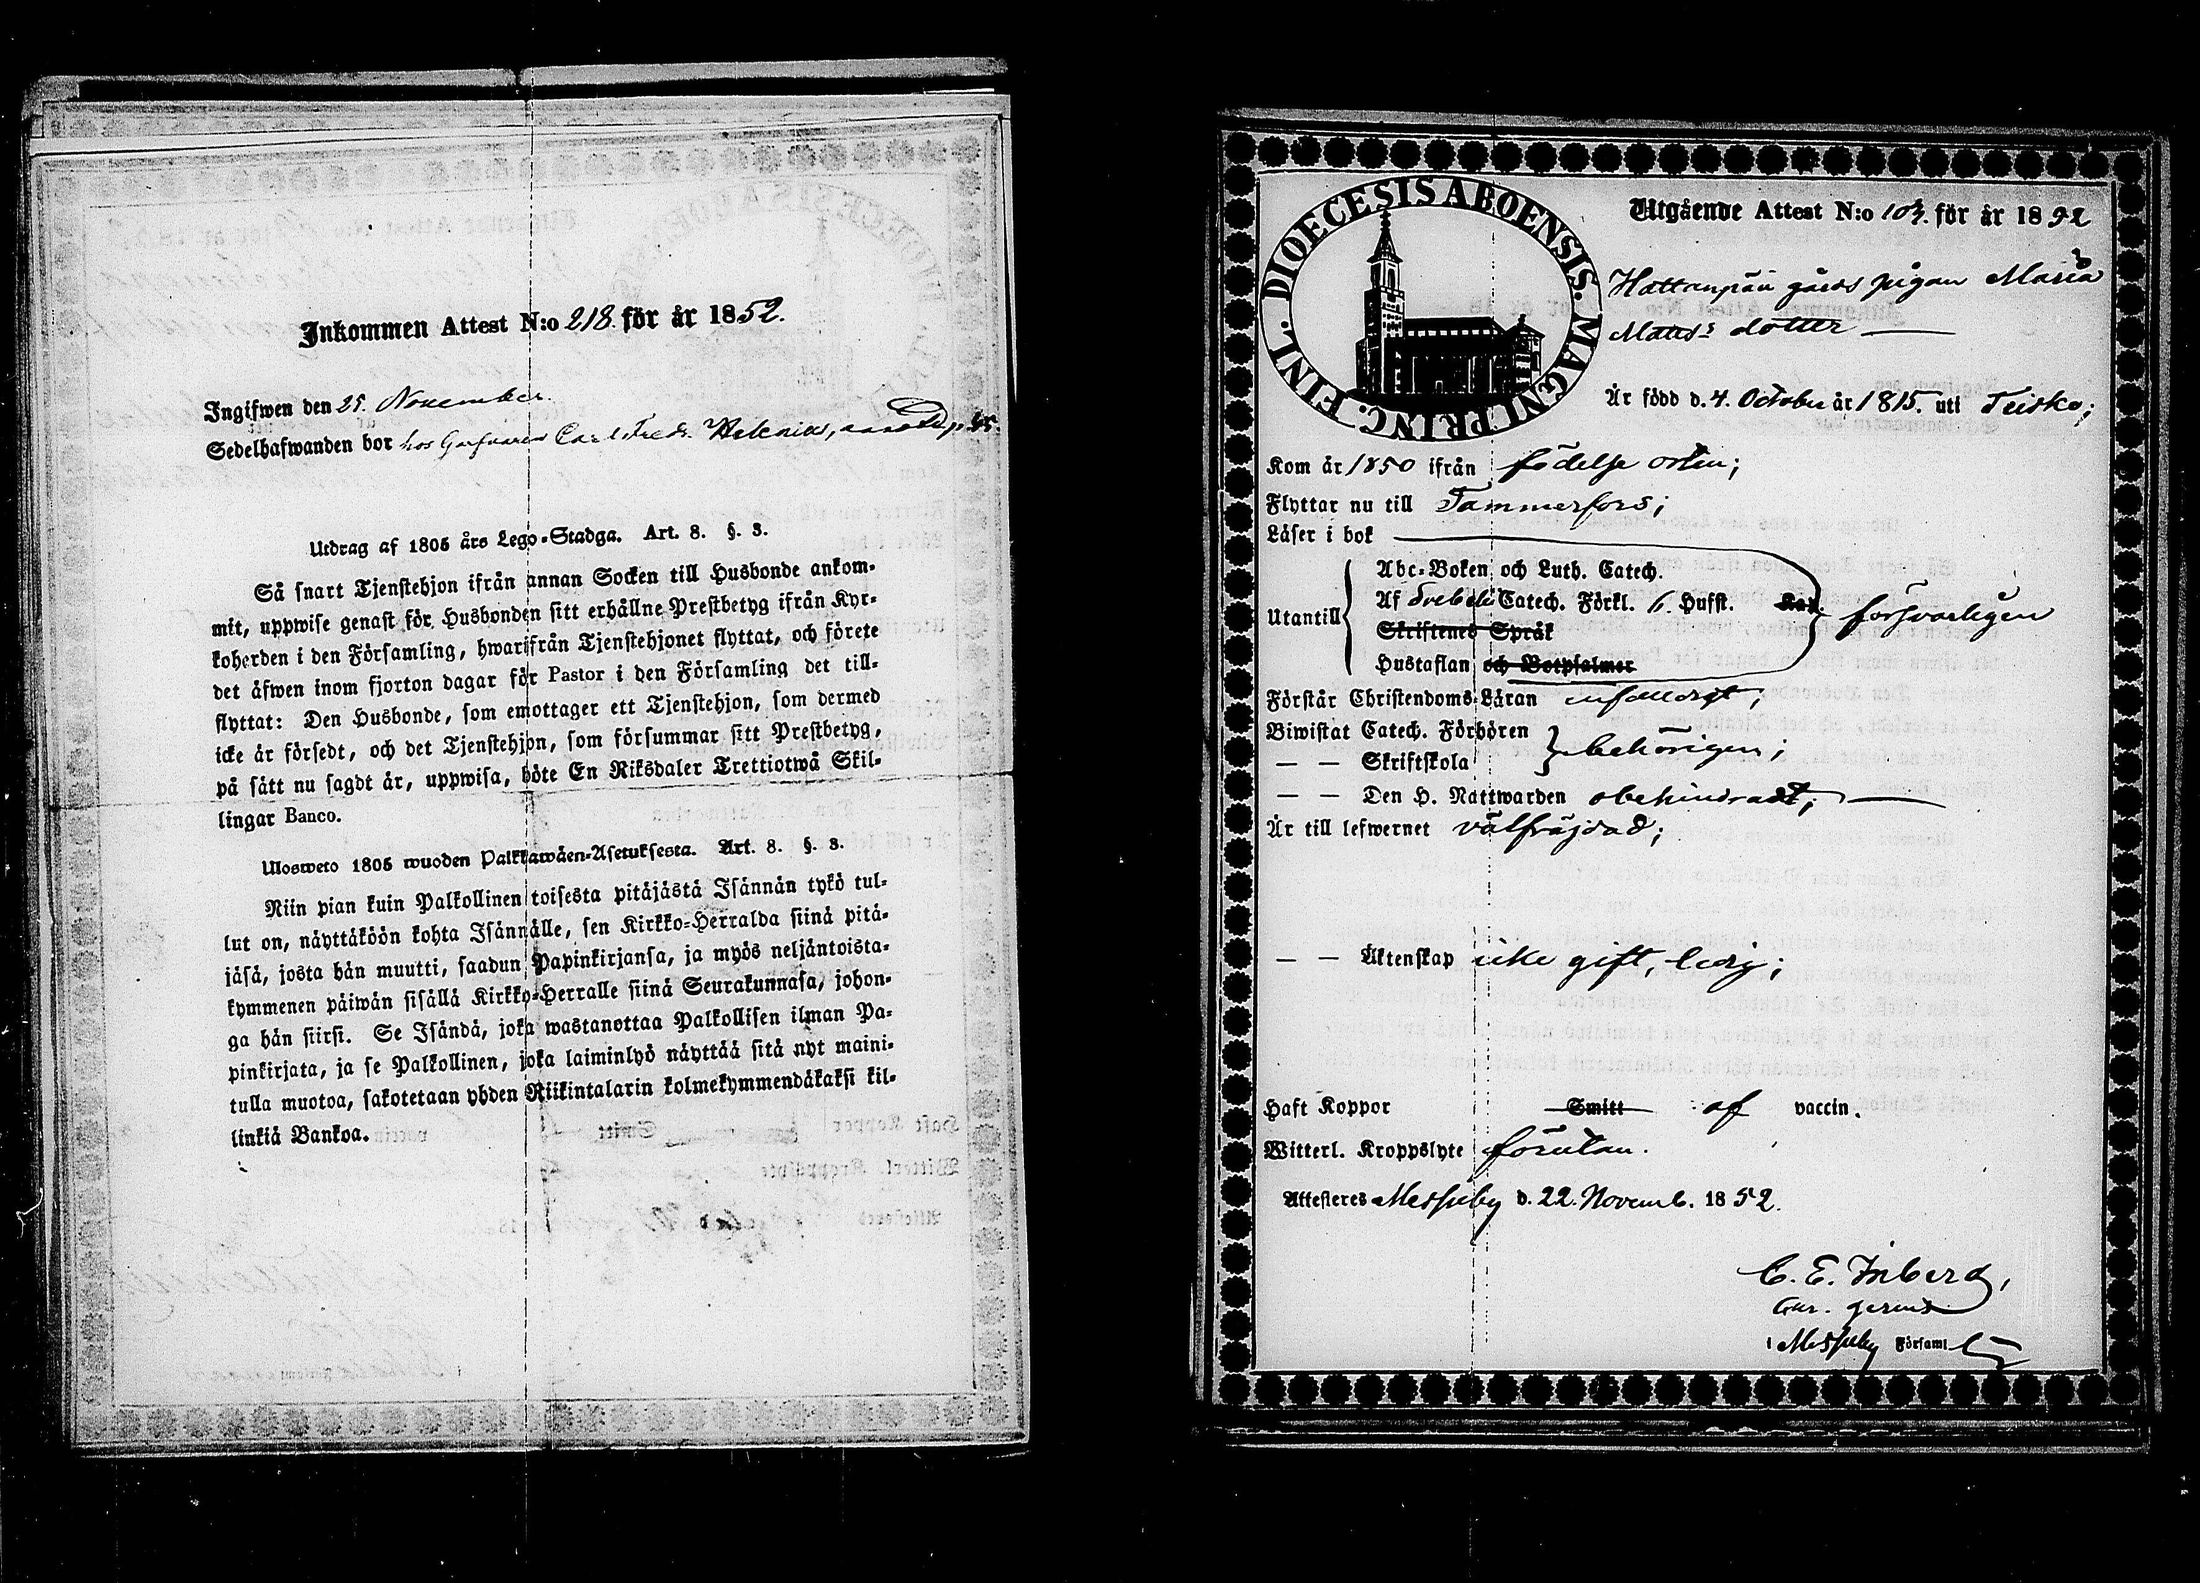 Inkommen Attest N:o 218. för år 1852.
Ingifwen den 25. November.
Sedelhafwanden bor hos Garfvaren Carl Fredr. Helenius,
Utdrag af 1805 års Lego-Stadga. Art. 8. §. 3.
Så snart Tjenstehjon ifrån annan Socken till Husbonde ankom-
mit, uppwise genast för Husbonden sitt erhållne Prestbetyg ifrån Kyr-
koherden i den Församling, hwarifrån Tjenstehjonet flyttat, och förete
det äfwen inom fjorton dagar för Pastor i den Församling det till-
flyttat: Den Husbonde, som emottager ett Tjenstehjon, som dermed
icke är försedt, och det Tjenstehjon, som försummar sitt Prestbetyg,
på sätt nu sagdt är, uppwisa, böte En Riksdaler Trettiotwå Skil-
lingar Banco.
Ulosweto 1805 wuoden Palkkawäen-Asetuksesta. Art. 8. §. 3.
Niin pian kuin Palkollinen toisesta pitäjästä Isännän tykö tul-
lut on, näyttäköön kohta Isännälle, sen Kirkko-Herralda siinä pitä-
jäsä, josta hän muutti, saadun Papinkirjansa, ja myös neljäntoista-
kymmenen päiwän sisällä Kirkko-Herralle siinä Seurakunnasa, johon-
ga hän siirsi. Se Isändä, joka wastanottaa Palkollisen ilman Pa-
pinkirjata, ja se Palkollinen, joka laiminlyö näyttää sitä nyt maini-
tulla muotoa, sakotetaan yhden Riikintalarin kolmekymmendäkaksi kil-
linkiä Bankoa.
FINL. DIOECESIS ABOENSIS. MAGNI PRINC.
Utgående Attest N:o 103. för år 1852
Hattanpää gårds pigan Maria
Matts dotter
Är född d. 4. October år 1815. uti Teisko;
Kom år 1850 ifrån födelse orten;
Flyttar nu till Tammerfors;
Läser i bok
Utantill
Abc-Boken och Luth. Catech.
Af Svebeli Catech. Förkl. 6. Hufst. Kap. försvarligen
Skriftenes Språk
Hustaflan och Botpsalmer
Förstår Christendoms-Läran enfalldigt;
Biwistat Catech. Förhören
— — Skriftskola behörigen;
— — Den H. Nattwarden obehindradt;
Är till lefwernet välfräjdad;
— — Äktenskap icke gift, ledig;
Haft Koppor Smitt af vaccin.
Witterl. Kroppslyte förutan.
Attesteres Messuby d. 22. Novemb. 1852.
C. E. Inberg,
Cur. gerens
i Messuby Församl